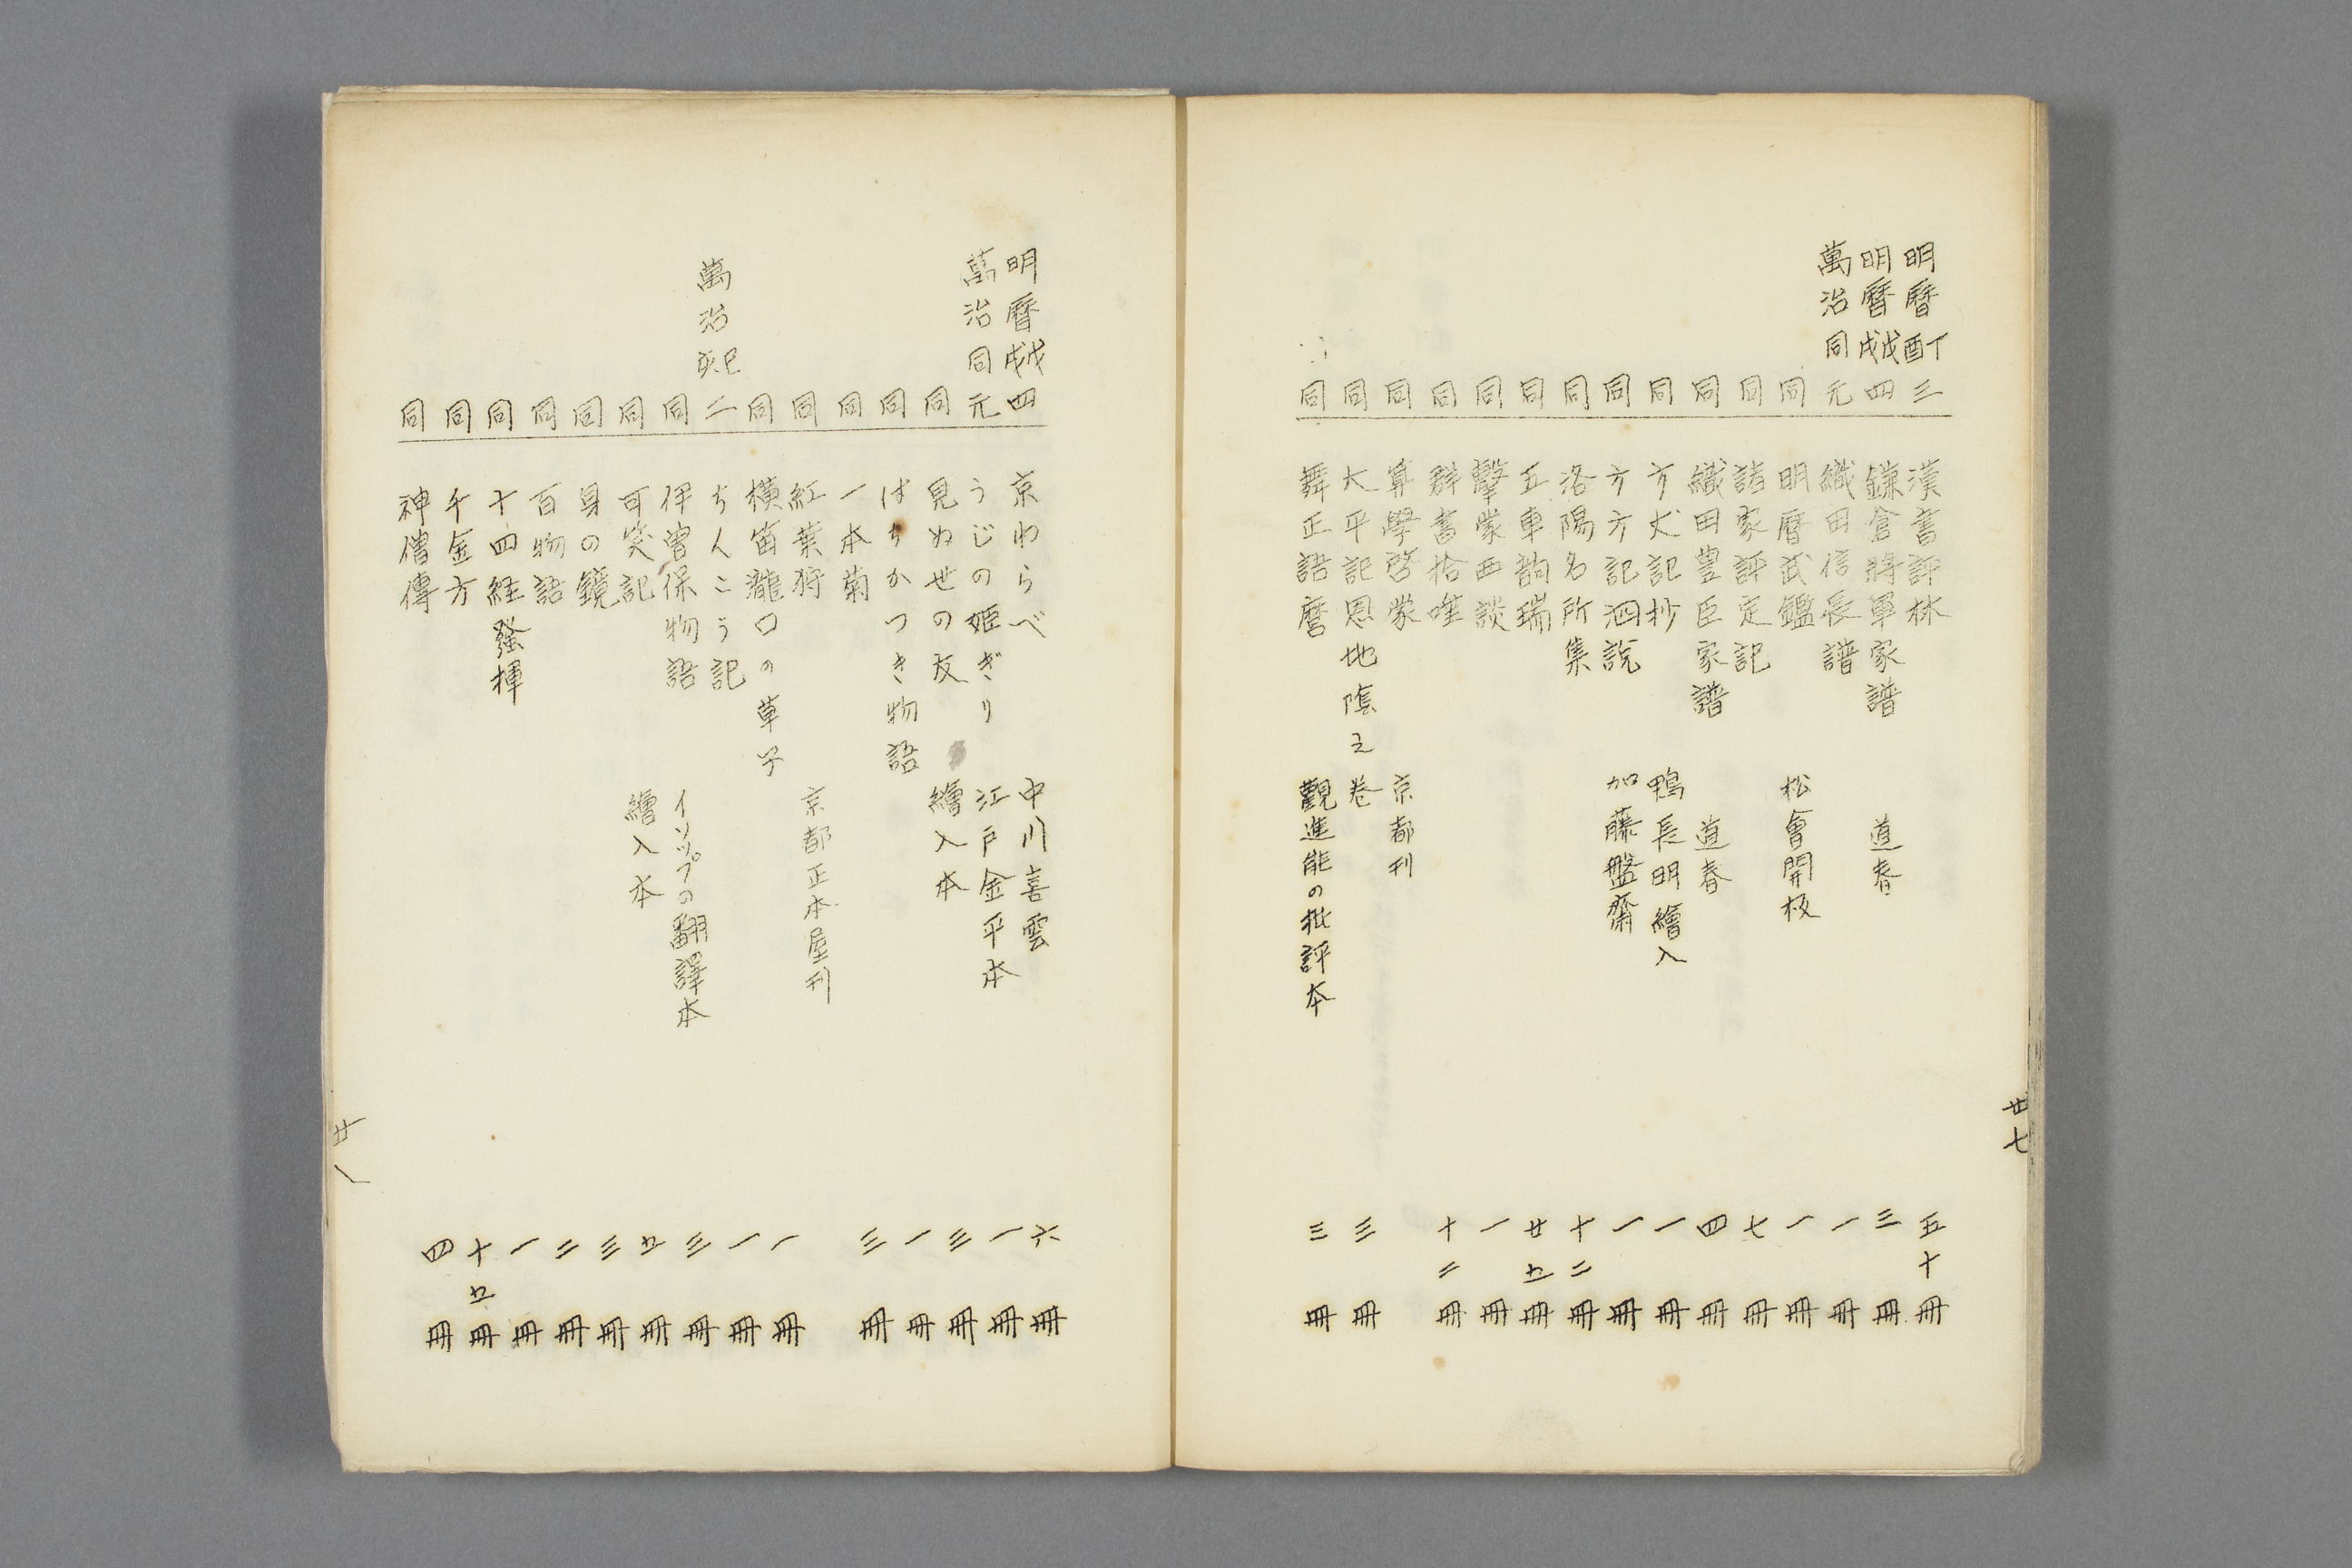 明暦丁酉三 漢書評林 五十冊
明暦戊戌四 鎌倉將軍家譜 道春 三冊
萬治同元 織田信長譜 一冊
同 明暦武鑑 松會開板 一冊
同 諸家評定記 七冊
同 織田豊臣家譜 道春 四冊
同 方丈記抄 鴨長明繪入 一冊
同 方方記泗説 加藤盤齋 一冊
同 洛陽名所集 十二冊
同 五車韵瑞 廿五冊
同 擊蒙西談 一冊
同 群書拾唯 十二冊
同 算學啓蒙 京都刊
同 大平記恩地陰之卷 三冊
同 舞正語麿 觀進能の批評本 三冊
廿七
明暦戊戌四 京わらべ 中川喜雲 六冊
萬治同元 うじの姫ぎり 江戸金平本 一冊
同 見ぬせの友 繪入本 三冊
同 はちかつき物語 一冊
同 一本菊 三冊
同 紅葉狩 京都正本屋刊
同 横笛瀧口の草子 一冊
萬治己亥二 ちんこう記 一冊
同 伊曽保物語 イソップの翻譯本 三冊
同 可笑記 繪入本 五冊
同 身の鏡 三冊
同 百物語 二冊
同 十四経發揮 一冊
同 千金方 十五冊
同 神僧傳 四冊
廿八